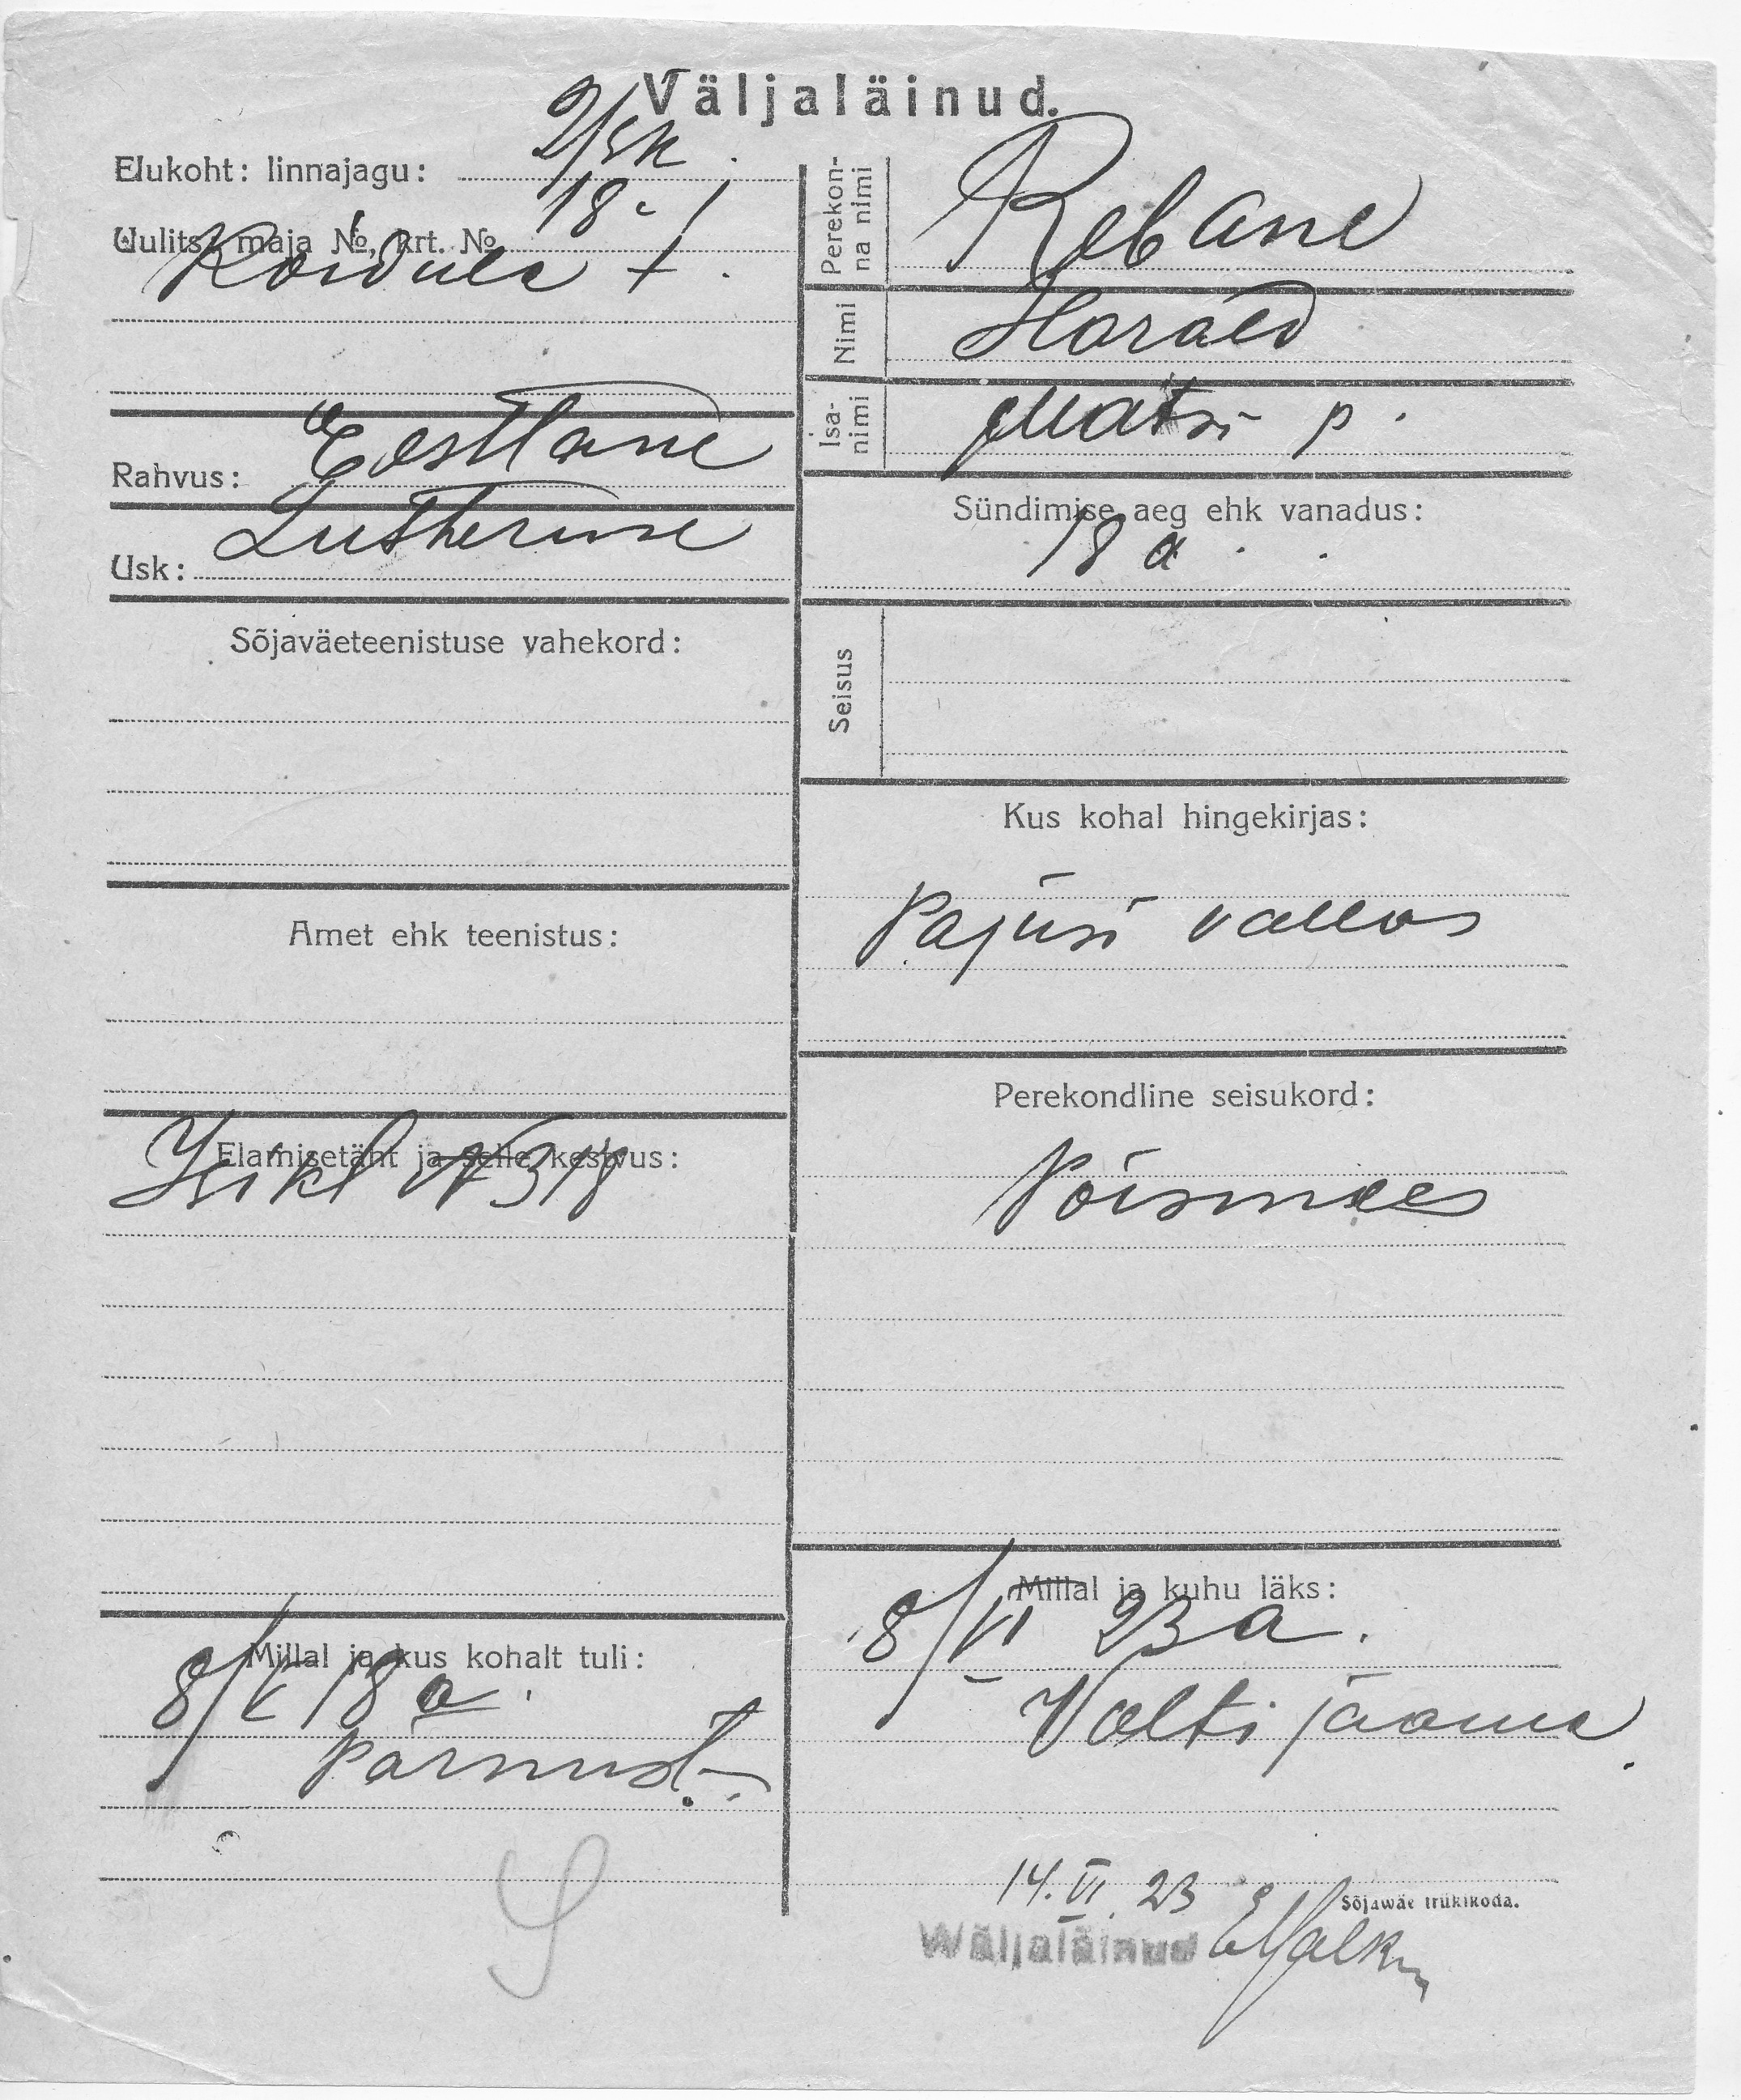 Väljaläinud.
Elukoht: linnajagu: 2/jsk.
Uulits, maja №, krt. № 18-1
Koidula t.
Rahvus: Eestlane
Usk: Lutheruse
Sõjaväeteenistuse vahekord:
Amet ehk teenistus:
Elamisetäht ja selle kestvus:
Isikt № 318
Millal ja kus kohalt tuli:
8/V 18 a.
Pärnust.
Perekonna nimi Rebane
Nimi Harald
Isanimi Matsi p.
Sündimise aeg ehk vanadus:
18 a.
Seisus
Kus kohal hingekirjas:
Pajusi vallas
Perekondline seisukord:
Poismees
Millal ja kuhu läks:
8/VI 23 a.
Balti jaama.
14. VI. 23
Sõjawäe trükikoda.
Wäljaläinud